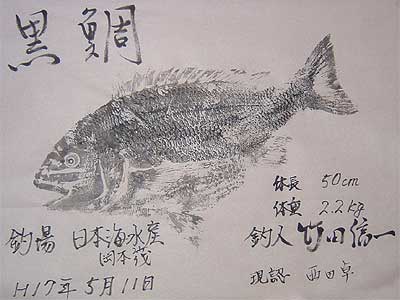 黒鯛
体長 50cm
体重 2.2kg
釣場 日本海水産
岡本茂
釣人 竹田信一
H17年5月11日
現認 西田卓